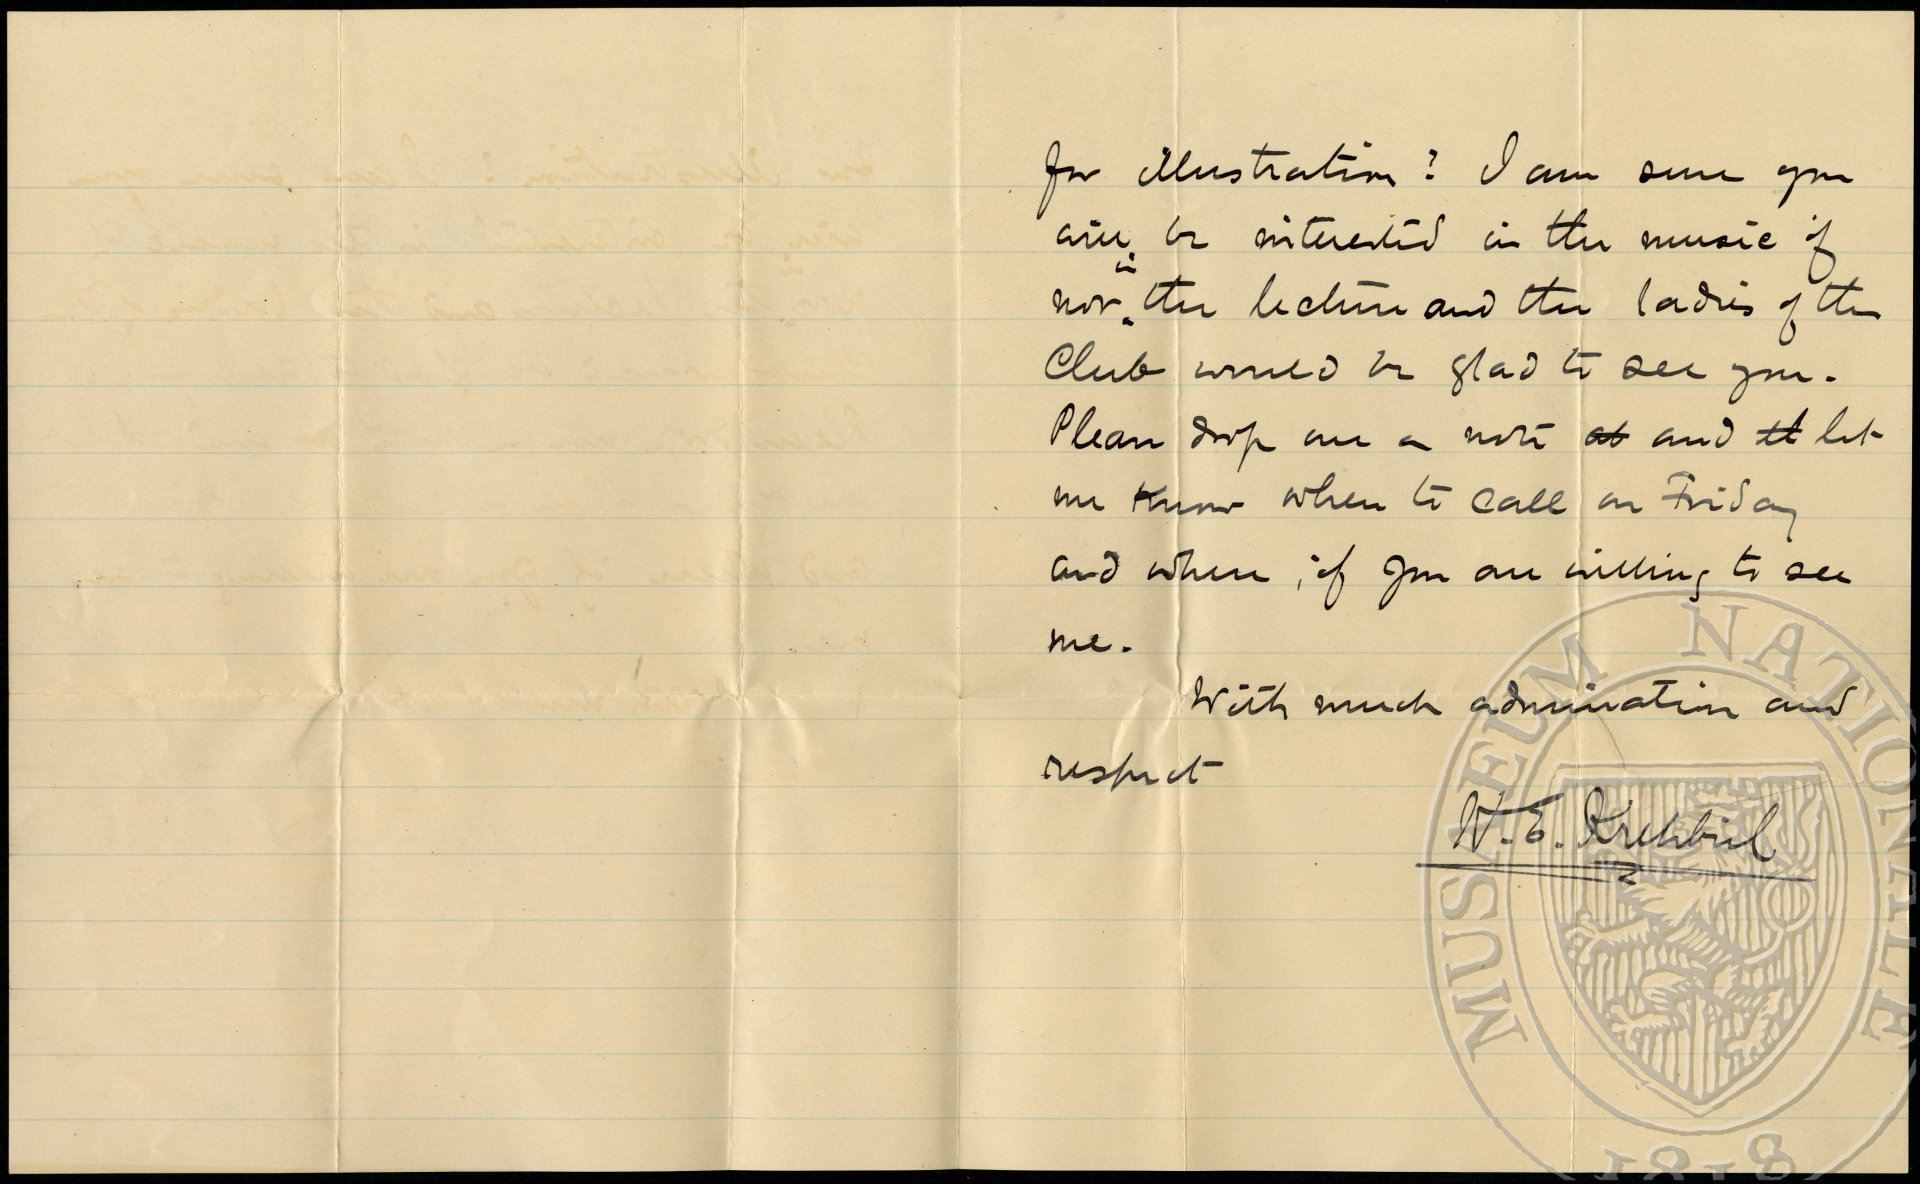 for illustration? I am sure you
will be interested in the music if
not in the lecture and the ladies of the
Club would be glad to see you.
Please drop me a note at and tt let
me know when to call on Friday
and where, if you are willing to see
me.
With much admiration and
respect
H. E. Krehbiel
MUSAEUM NATIONALE
1818